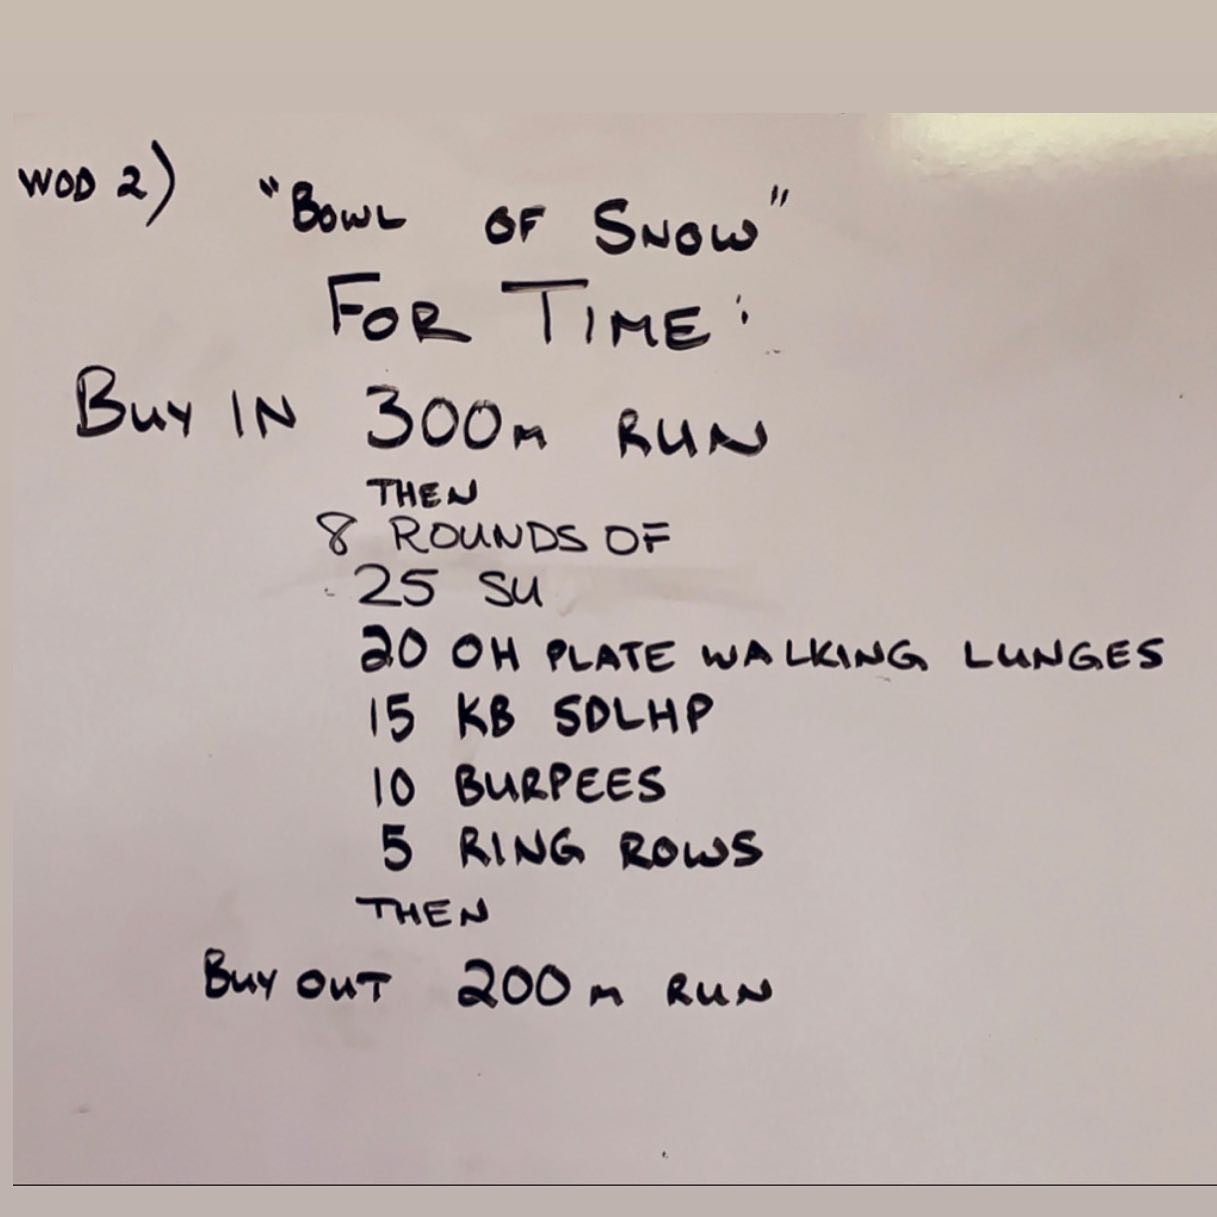 WOD 2) "BOWL OF SNOW"
FOR TIME:
BUY IN 300m RUN
THEN
8 ROUNDS OF
25 SU
20 OH PLATE WALKING LUNGES
15 KB SDLHP
10 BURPEES
5 RING ROWS
THEN
BUY OUT 200m RUN